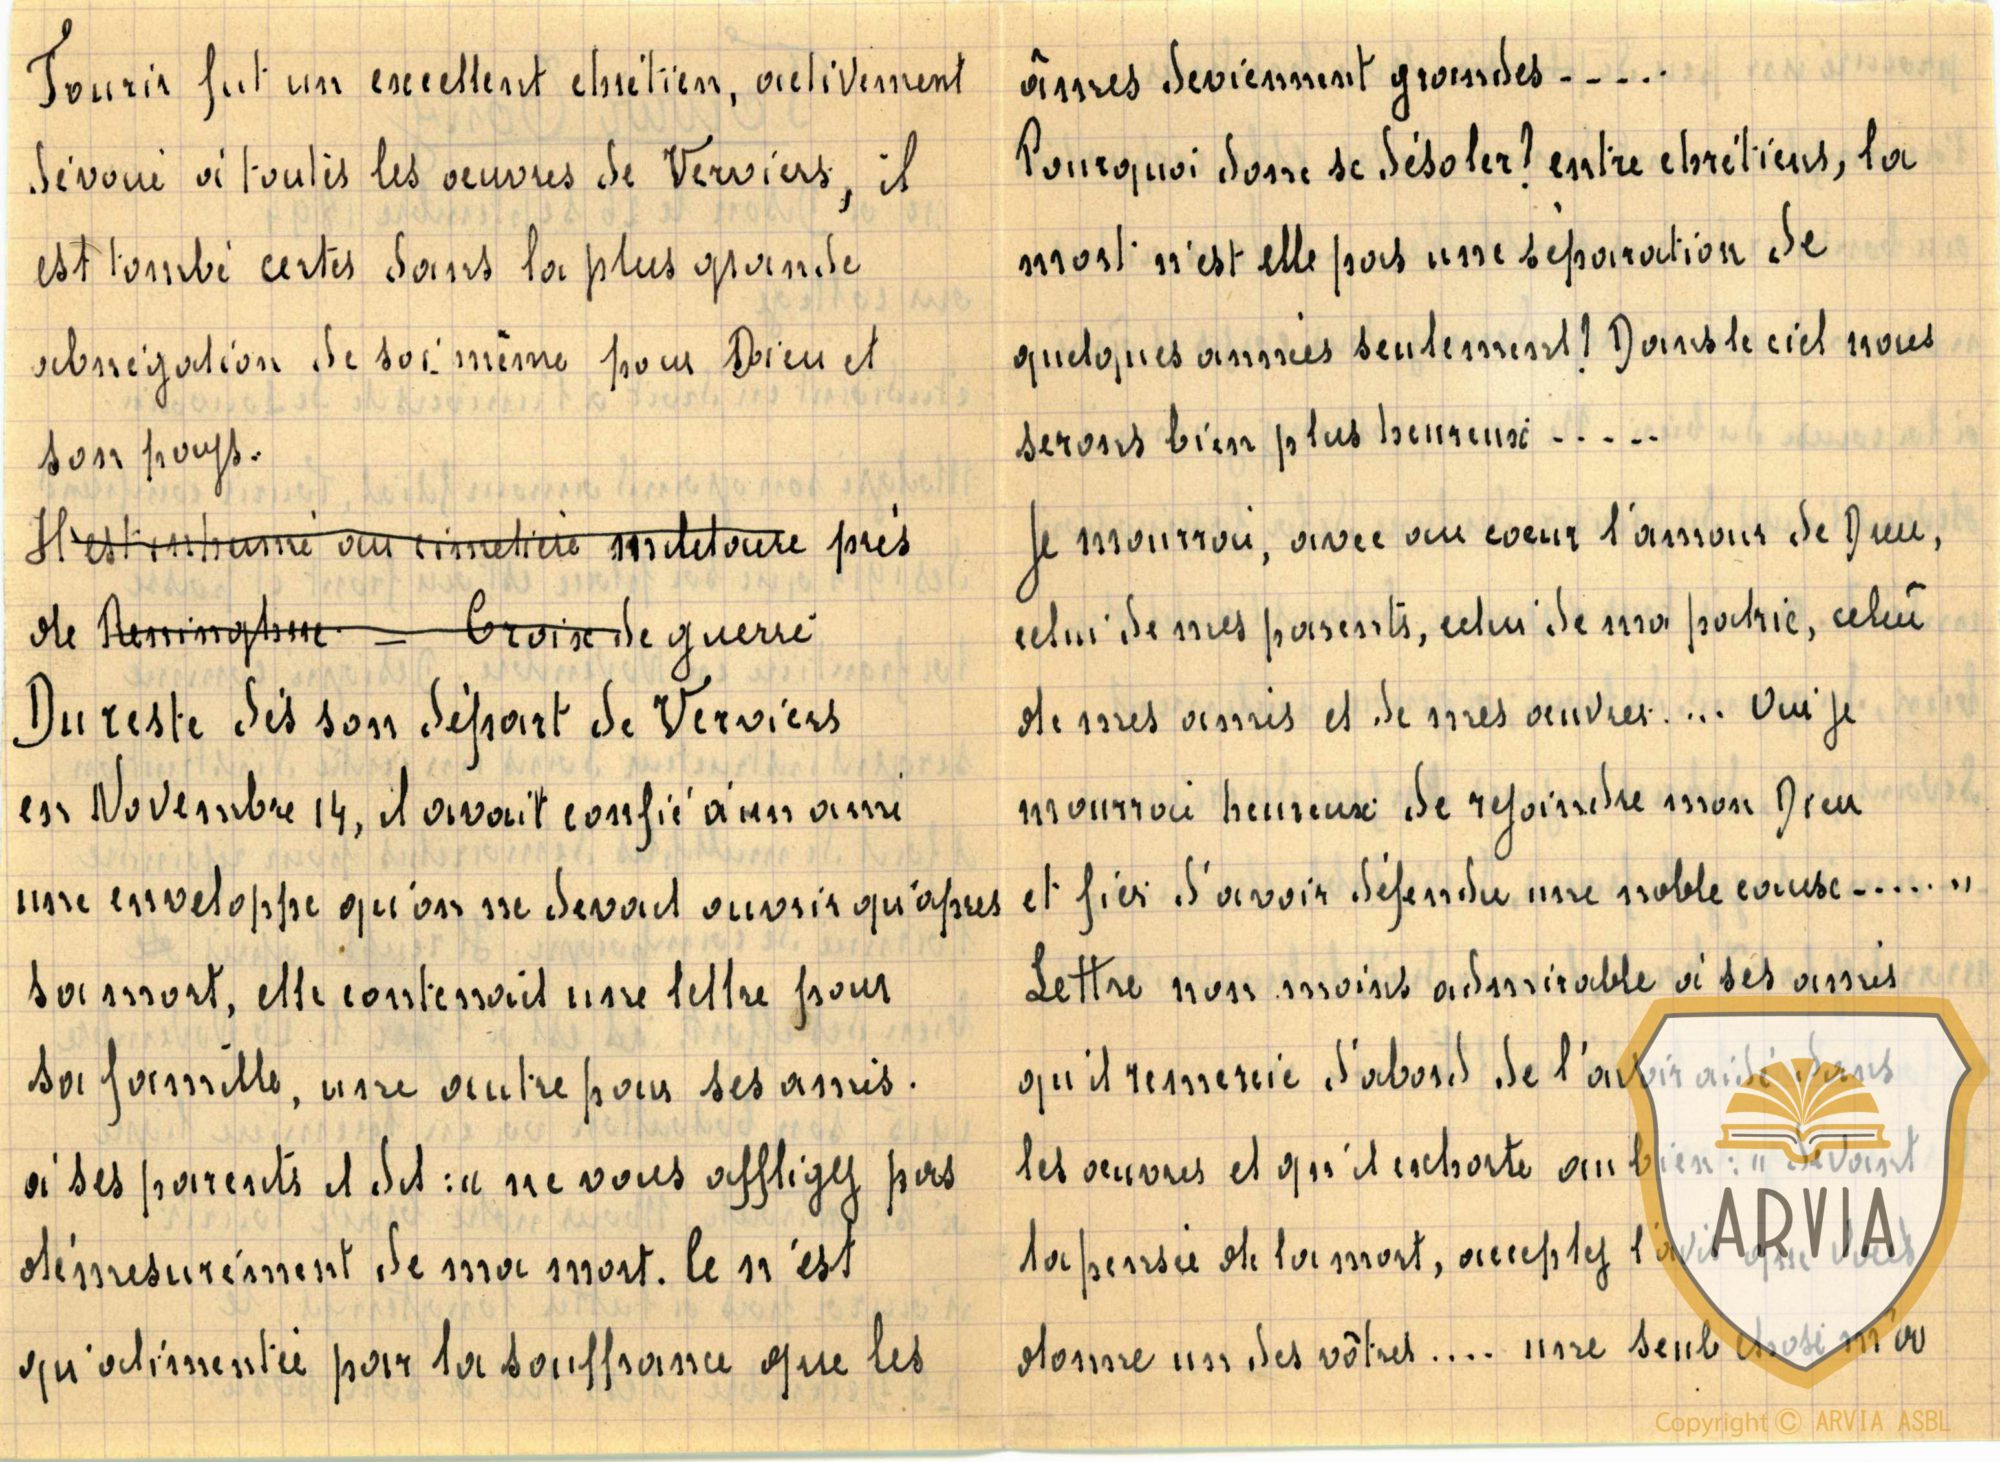 Fouir fut un excellent chrétien, activement
dévoué à toutes les oeuvres de Verviers, il
est tombé certes dans la plus grande
abnégation de soi-même pour Dieu et
son pays.
Il est inhumé au cimetière militaire près
de Reninghme = Croix de guerre
Du reste dès son départ de Verviers
en Novembre 14, il avait confié à un ami
une enveloppe qu'on ne devait ouvrir qu'après
sa mort, elle contenait une lettre pour
sa famille, une autre pour ses amis.
à ses parents il dit : " ne vous affligez pas
démesurément de ma mort. Ce n'est
qu'alimentée par la souffrance que les
âmes deviennent grandes - - - - -
Pourquoi donc se désoler? entre chrétiens, la
mort n'est elle pas une séparation de
quelques années seulement! Dans le ciel nous
serons bien plus heureux - - - - -
Je mourrai, avec au coeur l'amour de Dieu,
celui de mes parents, celui de ma patrie, celui
de mes amis et de mes oeuvres.... Oui je
mourrai heureux de rejoindre mon Dieu
et fier d'avoir défendu une noble cause - . . . . . "
Lettre non moins admirable à ses amis
qu'il remercie d'abord de l'avoir aidé dans
les oeuvres et qu'il exhorte au bien : " devant
la pensée de la mort, acceptez l'avis que vous
donne un des vôtres .... une seule chose m'a
ARVIA
Copyright © ARVIA ASBL